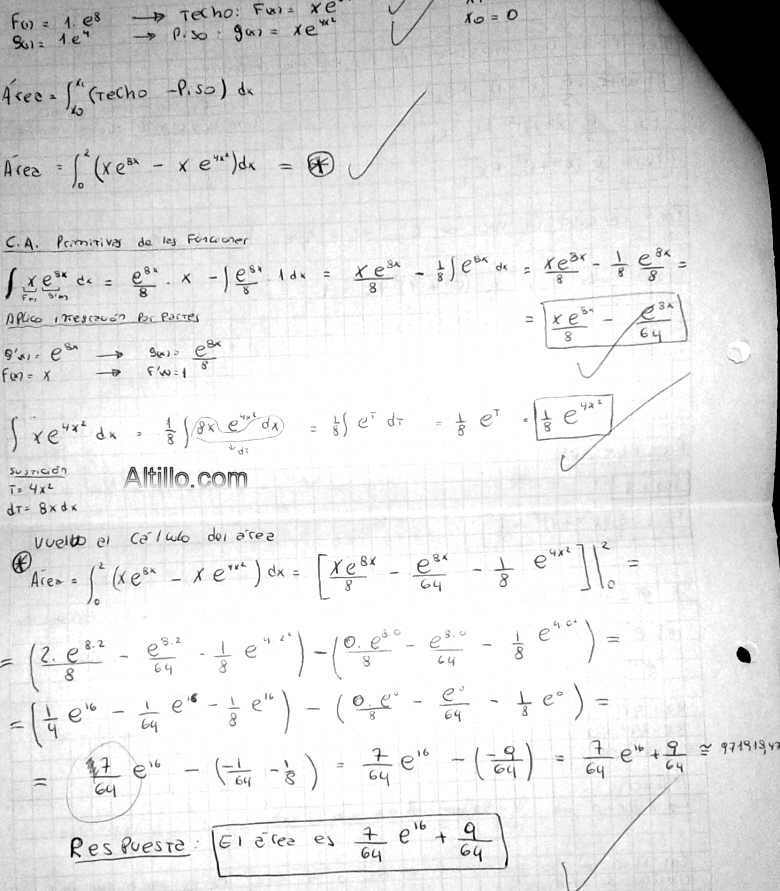 F(1) = 1. e⁸ → Techo: F(x) = xe
g(1) = 1e⁴ → Piso: g(x) = xe^(4x²)
x0 = 0
Área = ∫_{x0}^{x1} (Techo - Piso) dx
Área = ∫_0^2 (xe^(8x) - x e^(4x²)) dx = (*)
C.A. Primitivas de las Funciones
∫ x e^(8x) dx = e^(8x)/8 . x - ∫ e^(8x)/8 . 1 dx = xe^(8x)/8 - 1/8 ∫ e^(8x) dx = xe^(8x)/8 - 1/8 e^(8x)/8 =
F(x) g'(x)
Aplico integración por partes
= xe^(8x)/8 - e^(8x)/64
g'(x) = e^(8x) → g(x) = e^(8x)/8
F(x) = x → F'(x) = 1
∫ xe^(4x²) dx = 1/8 ∫ 8x e^(4x²) dx = 1/8 ∫ e^T dT = 1/8 e^T = 1/8 e^(4x²)
dT
Altillo.com
T = 4x²
dT = 8x dx
Vuelvo al Cálculo del área
(*) Área = ∫_0^2 (xe^(8x) - xe^(4x²)) dx = [xe^(8x)/8 - e^(8x)/64 - 1/8 e^(4x²)]|_0^2 =
= (2. e^(8.2)/8 - e^(8.2)/64 - 1/8 e^(4.2²)) - (0. e^(8.0)/8 - e^(8.0)/64 - 1/8 e^(4.0²)) =
= (1/4 e^16 - 1/64 e^16 - 1/8 e^16) - (0. e⁰/8 - e⁰/64 - 1/8 e⁰) =
= 7/64 e^16 - (-1/64 - 1/8) = 7/64 e^16 - (-9/64) = 7/64 e^16 + 9/64 ≅
Respuesta: El área es 7/64 e^16 + 9/64